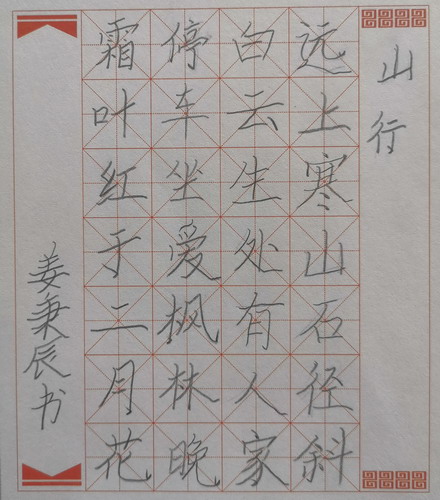 山行
远上寒山石径斜
白云生处有人家
停车坐爱枫林晚
霜叶红于二月花
姜秉辰书